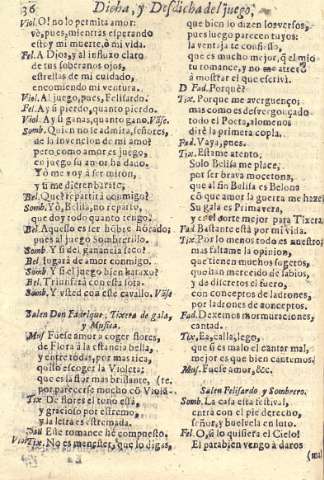 36 Dicha, y Desdicha del juego,
Viol. O! no lo permita amor:
vè, pues, mientras esperando
estoy mi muerte, ò mi vida.
Fel. A Dios, y al influxo claro
de tus soberanos ojos,
estrellas de mi cuidado,
encomiendo mi ventura.
Viol. Al juego, pues, Felisardo.
Fel. Ay si pierdo, quanto pierdo.
Viol. Ay si ganas, quanto gano. Vase.
Somb. Quien no le admira, señores,
de la invencion de mi amo?
pero como amor es juego,
en juego su amor ha dado.
Yo me voy à ser miron,
y si me dieren barato;
Bel. Què? repartirà conmigo?
Somb. Yo, Belisa, no reparto,
que doy todo quanto tengo.
Bel. Aquesso es ser hõbre hõrado;
pues al juego Sombrerillo.
Somb. Y si del ganancia saco?
Bel. Jugarà de amor conmigo.
Somb. Y si el juego bien baraxo?
Bel. Triunfarà con esta sota.
Somb. Y usted con este cavallo. Vase
Salen Don Fadrique, Tixera de gala,
y Musica.
Mus. Fuese amor a coger flores,
de Flora à la estancia bella,
y entre todas, por mas rica,
quiso escoger la Violeta;
que es la flor mas brillante, (te.
por parecerse mucho cõ Violã-
Tix. De flores el tono està,
y gracioso por estremo,
y la letra es estremada.
Mus. Este romance hè compuesto.
Tix. No es menester, que lo digas,
que bien lo dizen los versos,
pues luego parecen tuyos:
la ventaja te confiesso,
que es mucho mejor, q̃ el mio
tu romance, y no me atrevo
à mostrar el que escrivì.
D Fad. Porquè?
Tix. Porque me averguenço;
mas como es desvergonçado
todo el Poeta, alomenos
dirè la primera copla.
Fad. Vaya, pues.
Tix. Estame atento,
Solo Belisa me place,
por ser brava mocetona,
que al fin Belisa es Belona
cõ que amor la guerra me haze.
Su gala es Primavera,
y es el corte mejor para Tixera.
Fad. Bastante està por mi vida.
Tix. Por lo menos todo es nuestro;
mas faltame la opinion,
que tienen muchos sugetos,
que han merecido de sabios,
y de discretos el fuero,
con conceptos de ladrones,
por ladrones de conceptos.
Fad. Dexemos mormuraciones,
cantad.
Tix. Ea, calla, lego,
que si es malo el cantar mal,
mejor es que bien cantemos.
Mus. Fuese amor, &c.
Salen Felisardo y Sombrero.
Somb. La casa està festival,
entra con el pie derecho,
señor, y buelvela en luto.
Fel. O, si lo quisiera el Cielo!
El parabien vengo à daros